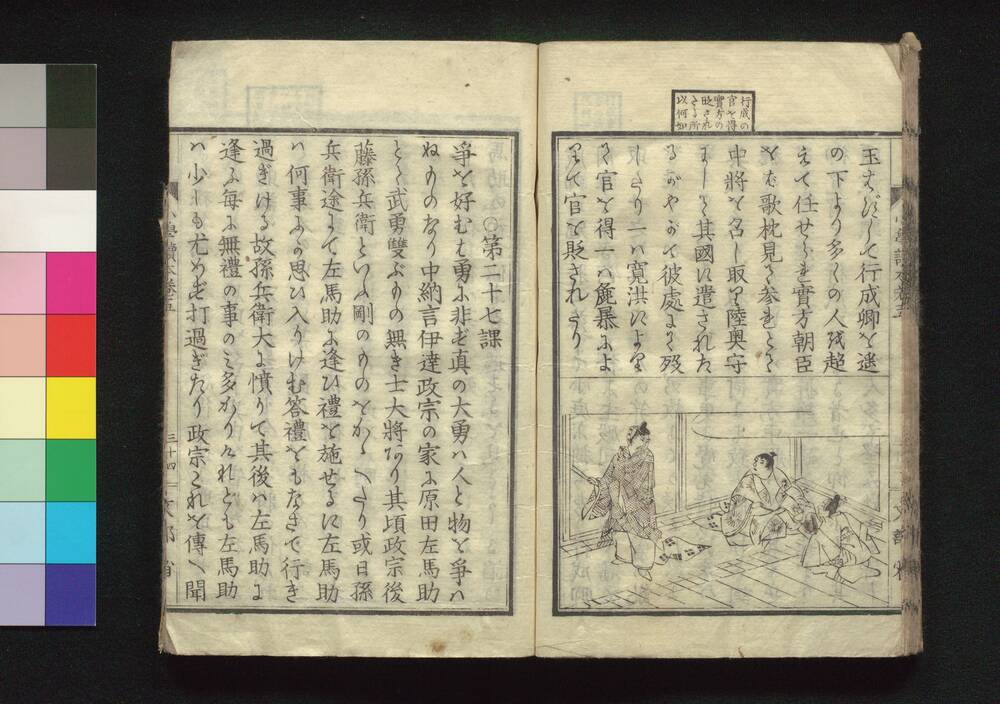 行成の
官を得
實方の
貶され
たる所
以何如
玉ひしとして行成卿を遙
の下より多くの人を超
えて任せられ實方朝臣
をば歌枕見て参れとて
中將を召し取り陸奥守
に其國に遣された
るがやがて彼處にて歿
したり一ハ寛洪により
て官を得一ハ麁暴によ
りて官を貶されたり
○第二十七課
爭を好むは勇に非ず真の大勇ハ人と物を爭ハ
ぬものなり中納言伊達政宗の家に原田左馬助
とて武勇雙ぶもの無き士大將あり其頃政宗後
藤孫兵衛といふ剛のものをかゝへたり或日孫
兵衛途にて左馬助に逢ひ禮を施せるに左馬助
ハ何事にか思ひ入りけむ答禮をもなさで行き
過ぎける故孫兵衛大に憤りて其後ハ左馬助に
逢ふ毎に無禮の事のみ多かりけれども左馬助
ハ少しも尤めず打過ぎたり政宗これを傳へ聞
小學讀本卷五
三十四
文部省